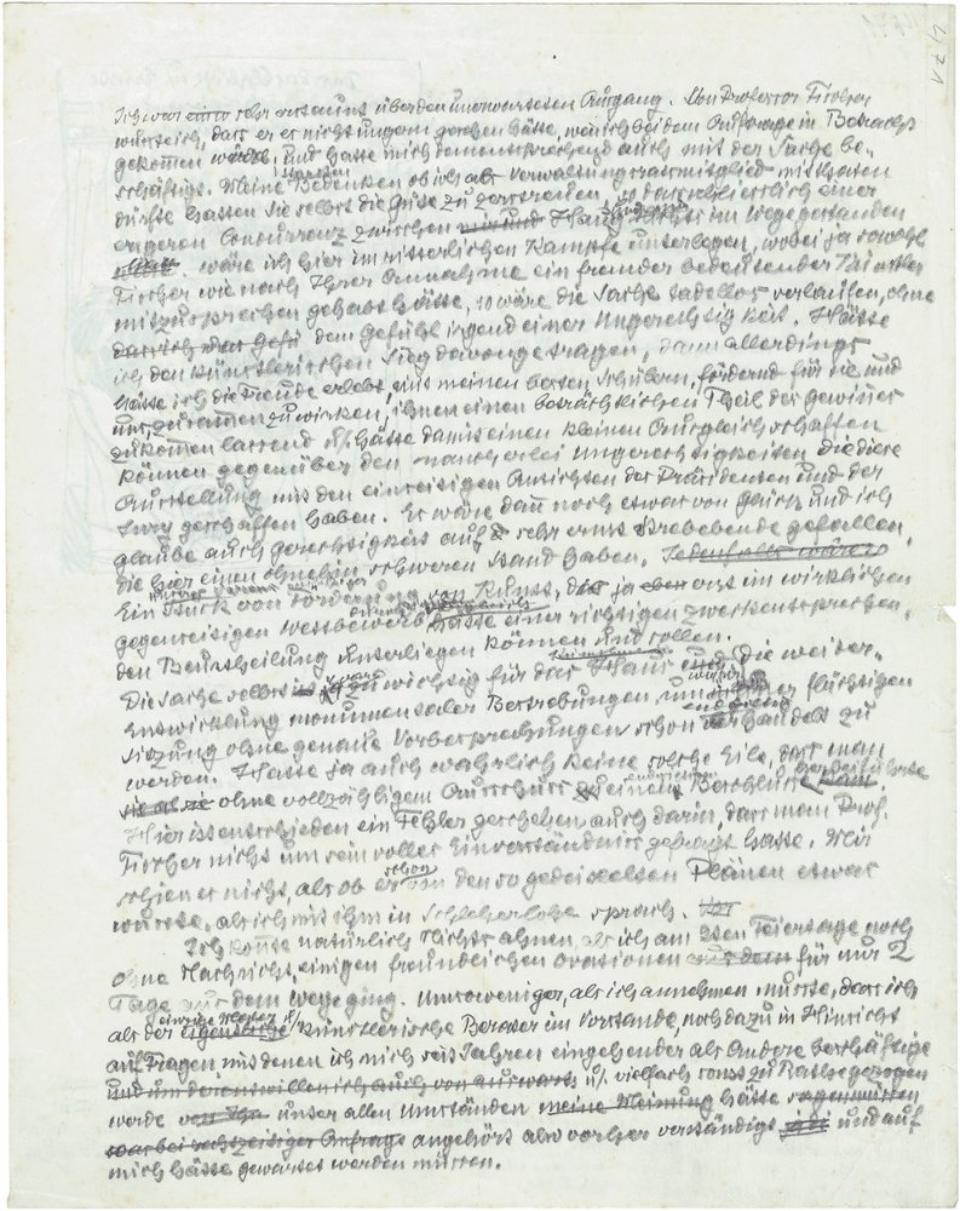 471
Ich war einer sehr erstaunt über den unerwarteten Ausgang. Von Professor Fischer
wusste ich, dass er es nicht ungern gesehen hätte, wenn ich bei dem Auftrage in Betracht
gekommen wäre, und hatte mich dementsprechend auch mit der Sache be-
schäftigt. Meine Bedenken ob ich als Verwaltungsratsmitglied mitthaten
dürfte hatten Sie selbst die Güte zu zerstreuen, so dass schliesslich einer
engeren Concurrenz zwischen mir und Haug nichts im Wege gestanden
hätte. wäre ich hier im ritterlichen Kampfe unterlegen, wobei ja sowohl
Fischer wie nach Ihrer Annahme ein fremder bedeutender Künstler
mitzusprechen gehabt hätte, so wäre die Sache tadellos verlaufen, ohne
dass ich das Gefü dem Gefühl irgend einer Ungerechtigkeit. Hätte
ich den künstlerischen Sieg davongetragen, dann allerdings
hätte ich die Freude erlebt, mit meinen besten Schülern, fördernd für sie und
uns, zusammen zu wirken, ihnen einen beträchtlichen Theil des Gewinnes
zukommen lassend u/ hätte damit einen kleinen Ausgleich schaffen
können gegenüber den mancherlei Ungerechtigkeiten die diese
Ausstellung mit den einseitigen Ansichten des Präsidenten und der
Jury geschaffen haben. Es wäre dann noch etwas von Glück und ich
glaube auch Gerechtigkeit auf sehr ernst Strebende gefallen,
die hier einen ohnehin schweren Stand haben. Jedenfalls wäre
Ein Stück von Förderung von Kunst, das ja eben erst im wirklichen
gegenseitigen Wettbewerb hätte einer richtigen zweckentsprechen-
den Beurtheilung unterliegen können und sollen.
Die Sache selbst war zu wichtig für das Haus und die weiter-
Entwicklung monumentaler Bestrebungen, um in einer flüchtigen
Sitzung ohne genaue Vorbesprechungen schon verhandelt zu
werden. Hatte ja auch wahrlich keine solche Eile, dass man
sie als sie ohne vollzähligem Ausschuss zu einem Beschlusse herbeiführte
Hier ist entschieden ein Fehler geschehen auch darin, dass man Prof.
Fischer nicht um sein volles Einverständniss gefragt hatte. Mir
schien es nicht, als ob er schon von den so gedeichselten Plänen etwas
wusste, als ich mit ihm in Schleherlohe sprach. Vor
Ich konnte natürlich Nichts ahnen, als ich am 2ten Feiertage noch
ohne Nachricht, einigen freundlichen Ovationen aus dem für nur 2
Tage aus dem Wege ging. Umsoweniger, als ich annehmen musste, dass ich
als der einzige Maler u/ eigentliche künstlerische Berater im Vorstande, noch dazu in Hinsicht
auf Fragen, mit denen ich mich seit Jahren eingehender als Andere beschäftige
und um derentwillen ich auch von auswärts u/ vielfach sonst zu Rathe gezogen
werde von Ihn unter allen Umständen meine Meinung hätte sagen müssen
war bei rechtzeitiger Anfrage angehört also vorher verständigt und auf
mich hätte gewartet werden müssen.